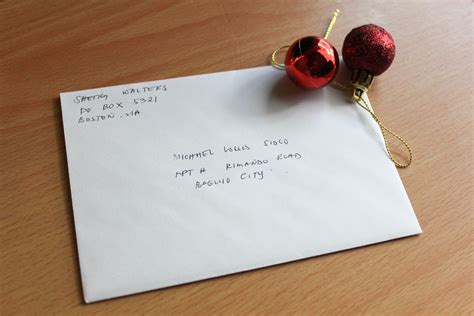 SHERRY WALTERS
PO BOX 5321
BOSTON, VA
MICHAEL LOUIS
APT # RIMANDO ROAD
BAGUIO CITY